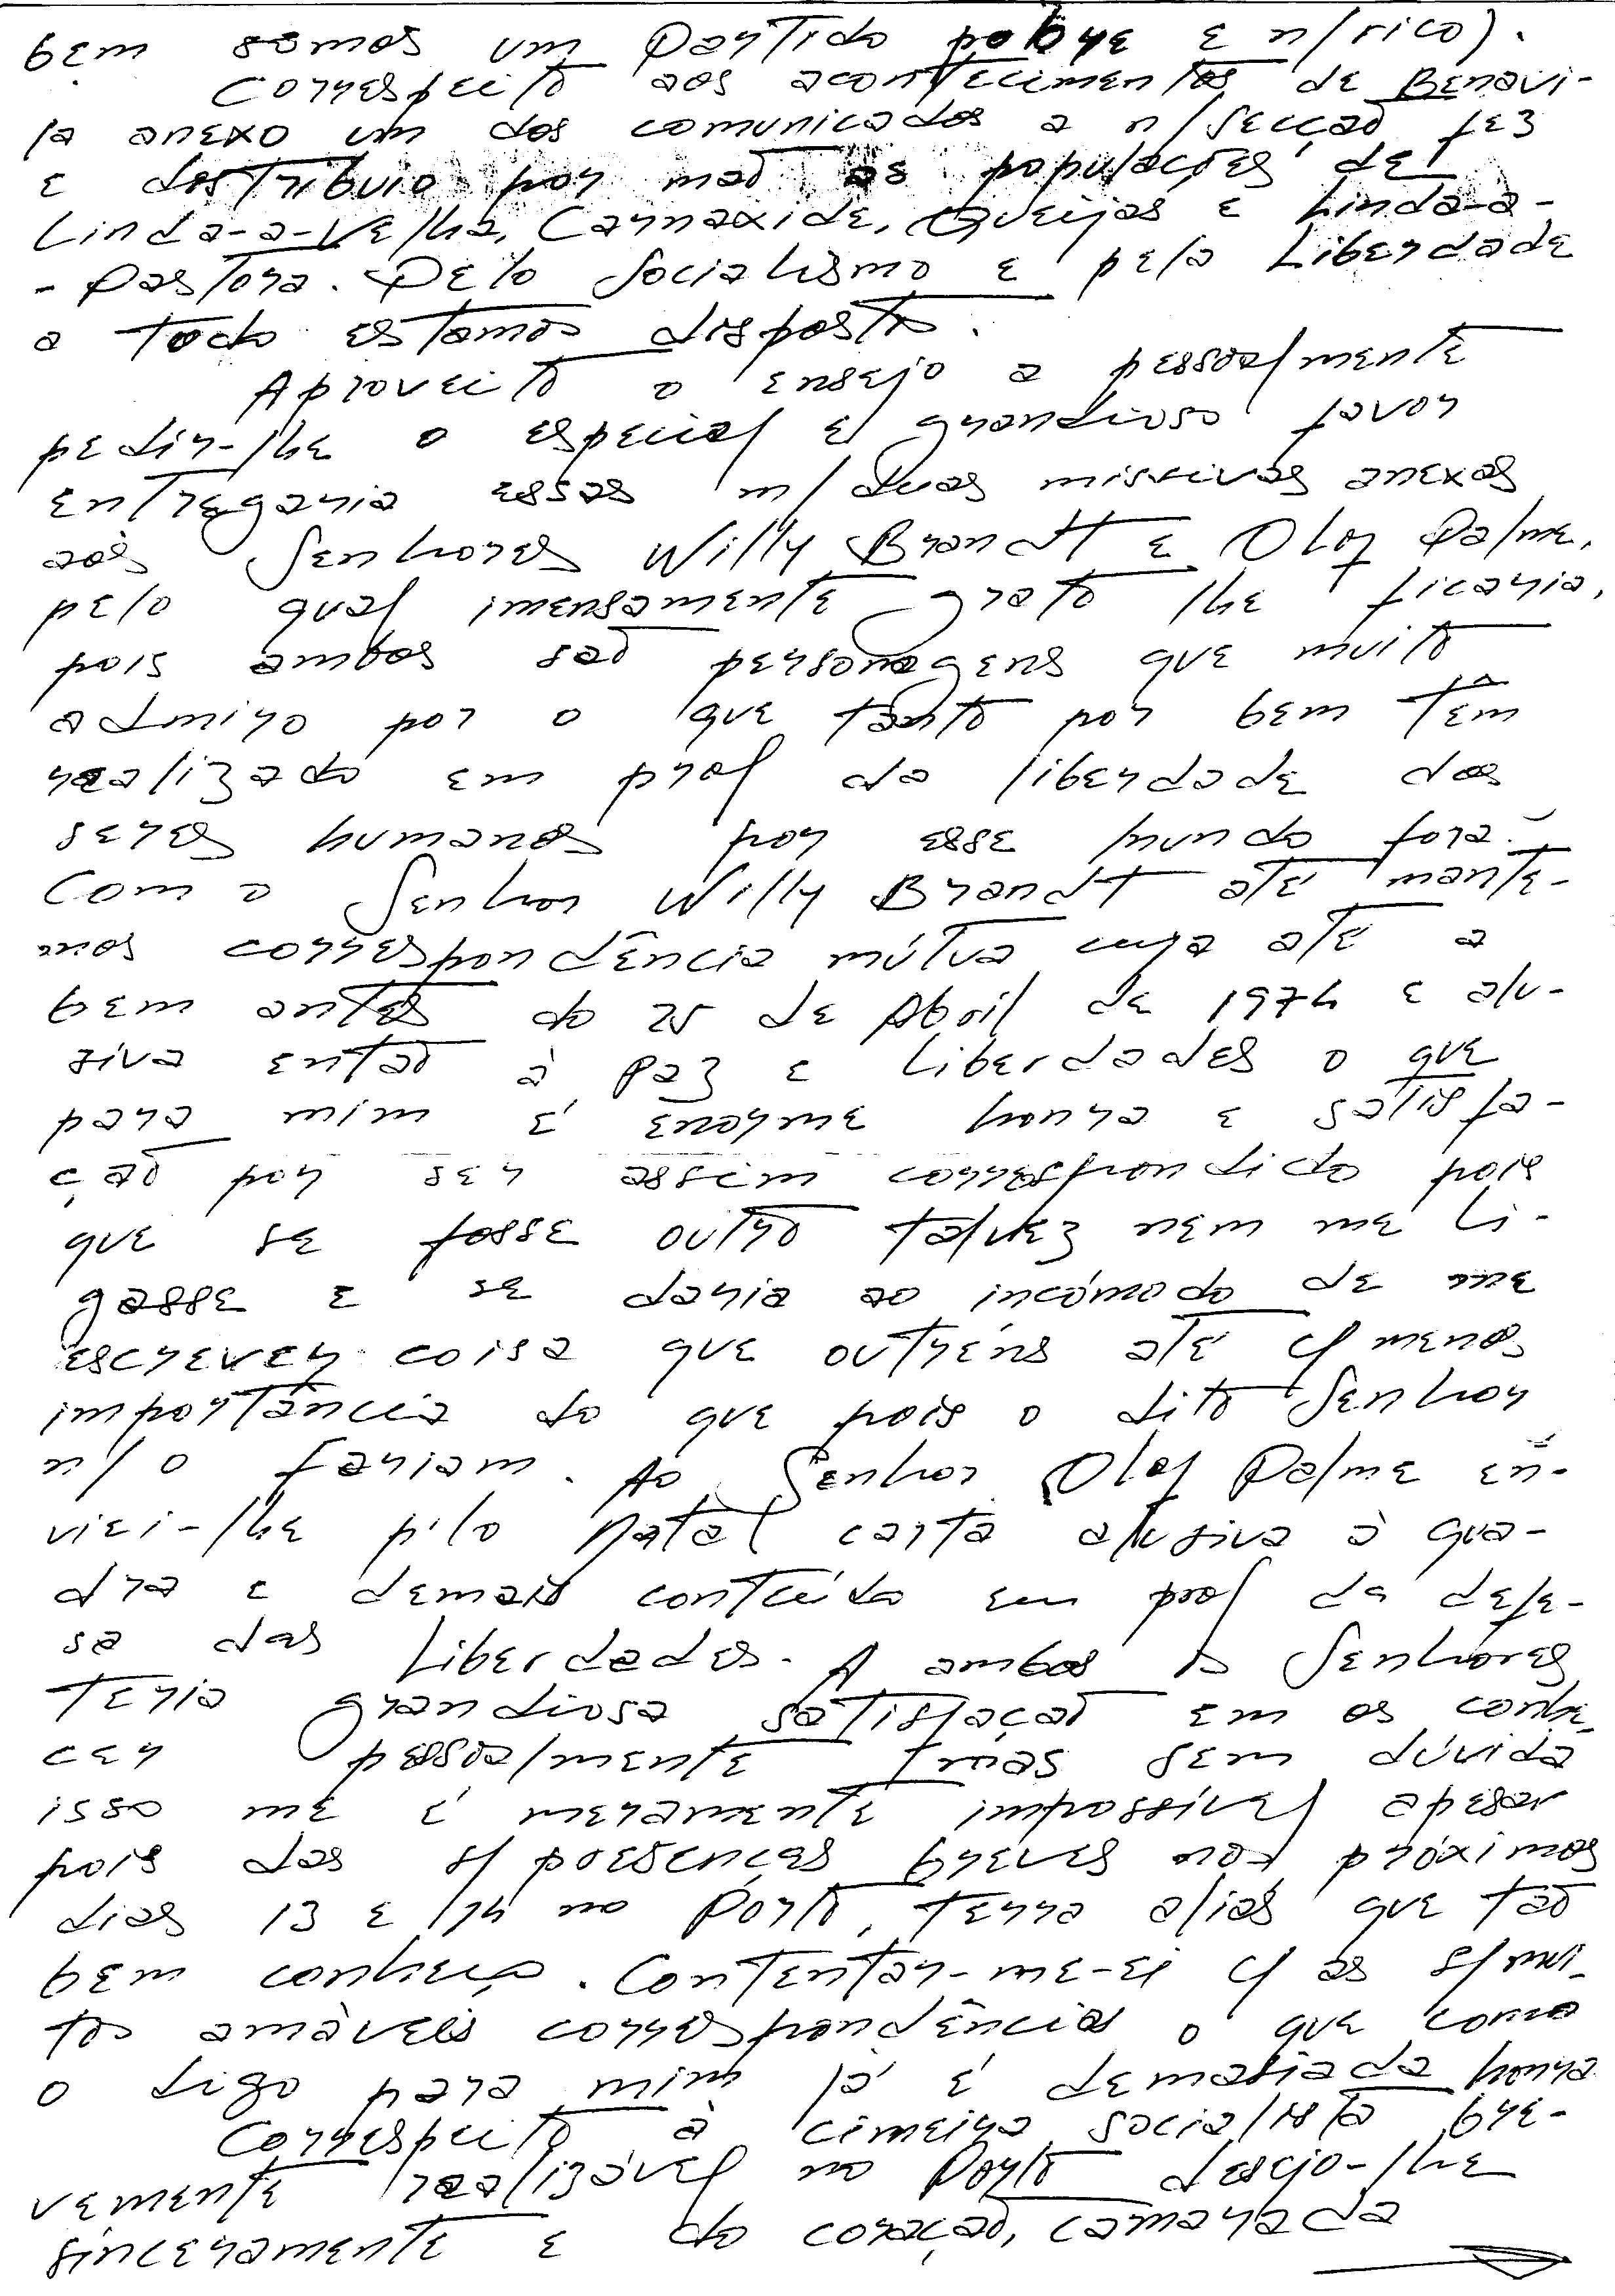 bem somos um Partido pobre e n/rico).
Corrrespeito aos acontecimentos de Benavi-
la anexo um dos comunicados a n/Secção fez
e dostribuio por mão as populações de
Linda-a-Velha, Carnaxide, Queijas e Linda-a-
-Pastora. Pelo Socialismo e pela Liberdade
a todo estamos dispostos.
Aproveito o ensejo a pessoalmente
pedir-lhe o especial e grandioso favor
entregaria essas m/duas missivas anexas
aos Senhores Willy Brandt e Olof Palme,
pelo qual imensamente grato lhe ficaria,
pois ambos são personagens que muito
admiro por o que tanto por bem têm
realizado em prol da liberdade dos
seres humanos por esse mundo fora.
Com o Senhor Willy Brandt até mante-
mos correspondência mútua cuja até a
bem antes do 25 de Abril de 1974 e alu-
siva então à Paz e Liberdades o que
para mim é enorme honra e satisfa-
ção por ser assim correspondido pois
que se fosse outro talvez nem me li-
gasse e se daria ao incómodo de me
escrever coisa que outréns até c/ menos
importância do que pois o dito Senhor
n/o fariam. Ao Senhor Olof Palme en-
viei-lhe p'lo Natal carta alusiva à qua-
dra e demais conteúdo em prol da defe-
sa das Liberdades. A ambos os Senhores
teria grandiosa satisfação em os conhe-
cer pessoalmente mas sem dúvida
isso me é meramente impossível apesar
pois das s/ presenças breves nos próximos
dias 13 e 14 no Porto, terra aliás que tão
bem conheço. Contentar-me-ei c/ as s/mui-
tos amáveis correspondências o que como
o digo para mim já é demasiada honra
Corrrespeito à cimeira socialista bre-
vemente realizável no Porto desejo-lhe
sinceramente e do coração, camarada